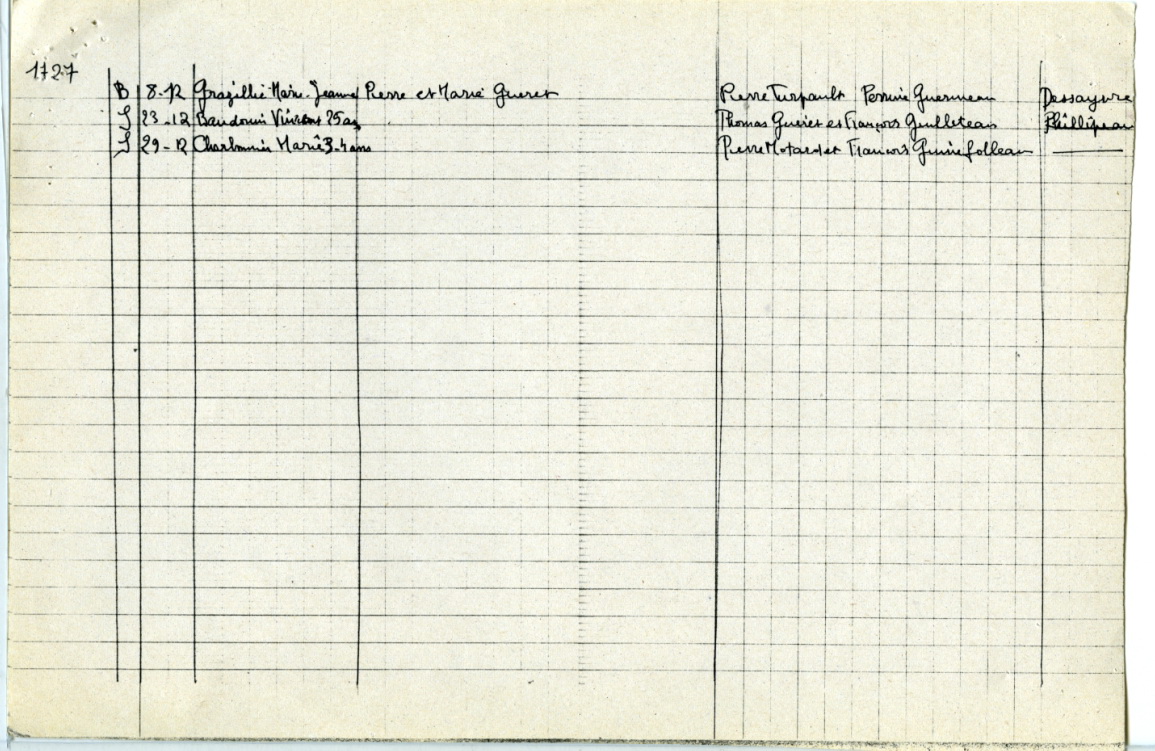 1727
B 8-12 Grazillié Marie-Jeanne Pierre et Marie Gueret Pierre Turpault Perrine Guermeau Dessayvre
S 23-12 Baudouin Vincent 25 ans Thomas Gueret et François Guilleteau Phillipeau
S 29-12 Charbonnier Marie 3-4 ans Pierre Motard et François